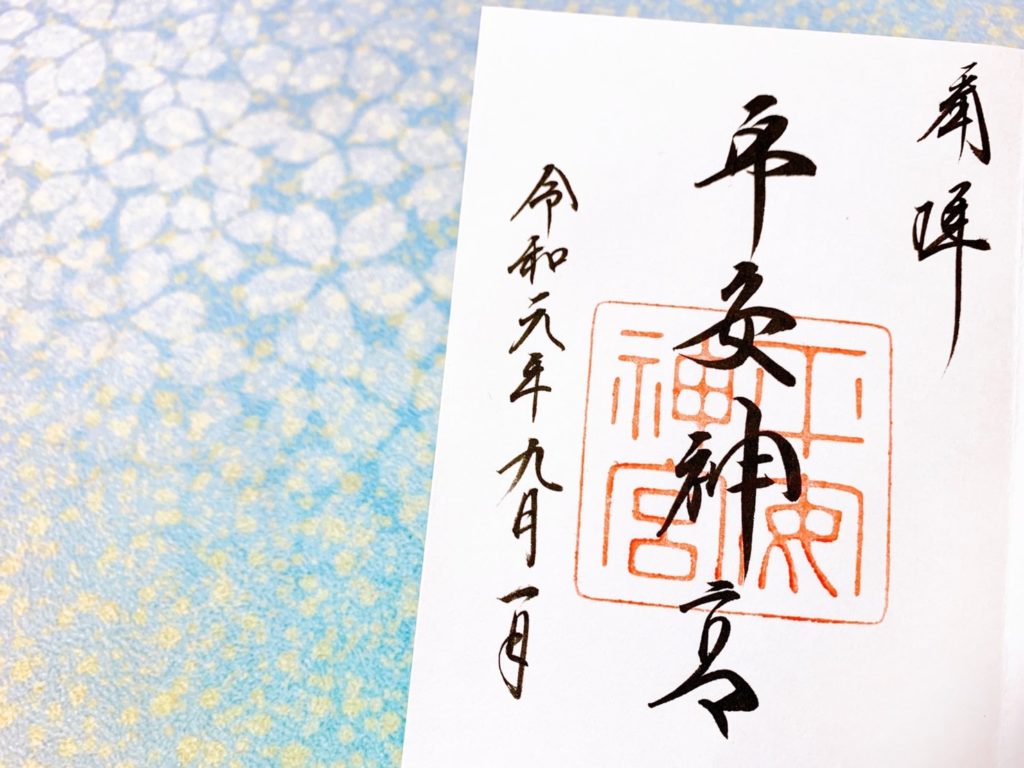 奉拝
平安神宮
令和元年九月一日
平安
神宮